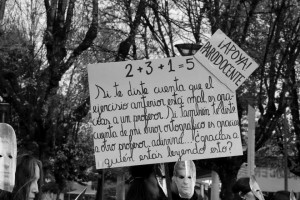 ¡APOYA!
PARODOCENTE
2+3+1=5
Si te diste cuenta que el
ejercisio anterior está mal, es gra-
cias a un profesor. Si también te diste
cuenta de mi error ortográfico es gracias
a otro profesor, ¿Gracias a
quién estás leyendo esto?